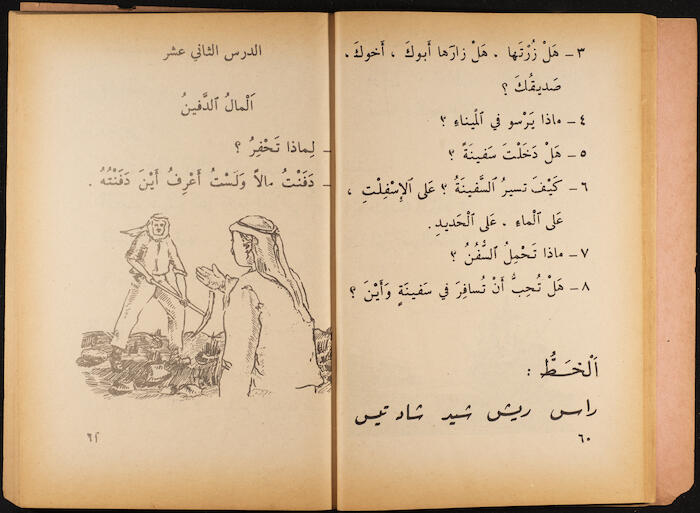 ٣ ـ هَلْ زُرْتَها . هَلْ زارَها أَبوكَ ، أَخوكَ ،
صَديقُكَ ؟
٤ ـ ماذا يَرْسو في ٱلْميناءِ ؟
٥ ـ هَلْ دَخَلْتَ سَفينَةً ؟
٦ ـ كَيْفَ تَسيرُ ٱلسَّفينَةُ ؟ عَلى ٱلْإِسْفِلْتِ ،
عَلى ٱلْماءِ . عَلى ٱلْحَديدِ.
٧ ـ ماذا تَحْمِلُ ٱلسُّفُنُ ؟
٨ ـ هَلْ تُحِبُّ أَنْ تُسافِرَ في سَفينَةٍ وَأَيْنَ ؟
اَلْخَطُّ :
راس ريش شيد شاد تيس
٦٠
الدرس الثاني عشر
اَلْمالُ ٱلدَّفينُ
ـ لِماذا تَحْفِرُ ؟
ـ دَفَنْتُ مالاً وَلَسْتُ أَعْرِفُ أَيْنَ دَفَنْتُهُ .
٦١